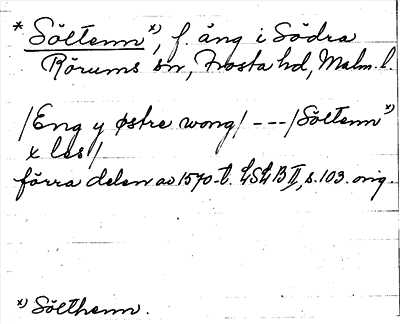 * Söltenn x), f. äng i Södra
Rörums sn, Frosta hd, Malm. l.
/Eng y østre wong/ --- /Söltenn x)
x les/
förra delen av 1570-t. LSLB II, s. 103. orig.
x) Sölthenn.